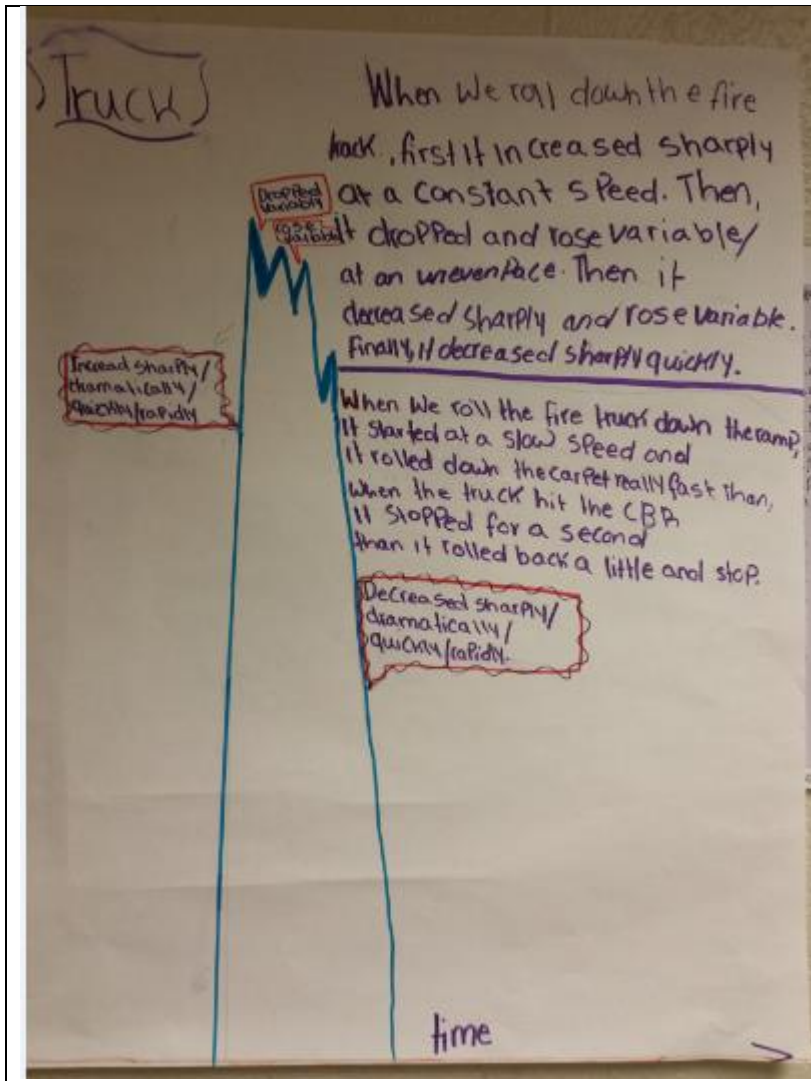 Truck
When we roll down the fire
truck, first it increased sharply
at a constant speed. Then,
it dropped and rose variable/
at an uneven pace. Then it
decreased sharply and rose variable.
Finally, it decreased sharply quickly.
Dropped
variably
rose
variable
Incread sharply/
dramatically/
quickly/rapidly
When we roll the fire truck down the ramp,
it started at a slow speed and
it rolled down the carpet really fast than,
when the truck hit the CBR
it stopped for a second
than it rolled back a little and stop.
Decreased sharply/
dramatically/
quickly/rapidly.
time